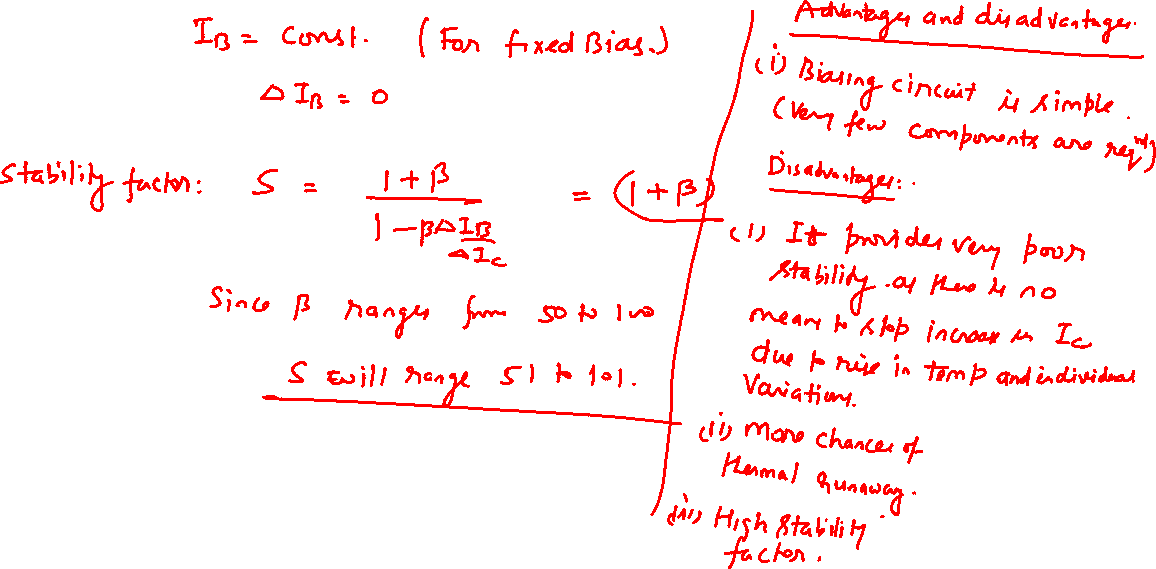 I_B = Const. (For fixed Bias.)
Δ I_B = 0
Stability factor: S = (1 + β) / (1 - β Δ I_B / Δ I_C) = (1 + β)
Since β ranges from 50 to 100
S will range 51 to 101.
Advantages and disadvantages.
(i) Biasing circuit is simple.
(very few components are req)
Disadvantages:
(i) It provides very poor
stability as there is no
means to stop increase in I_C
due to rise in temp and individual
Variations.
(ii) More chances of
thermal runaway.
(iii) High stability
factor.